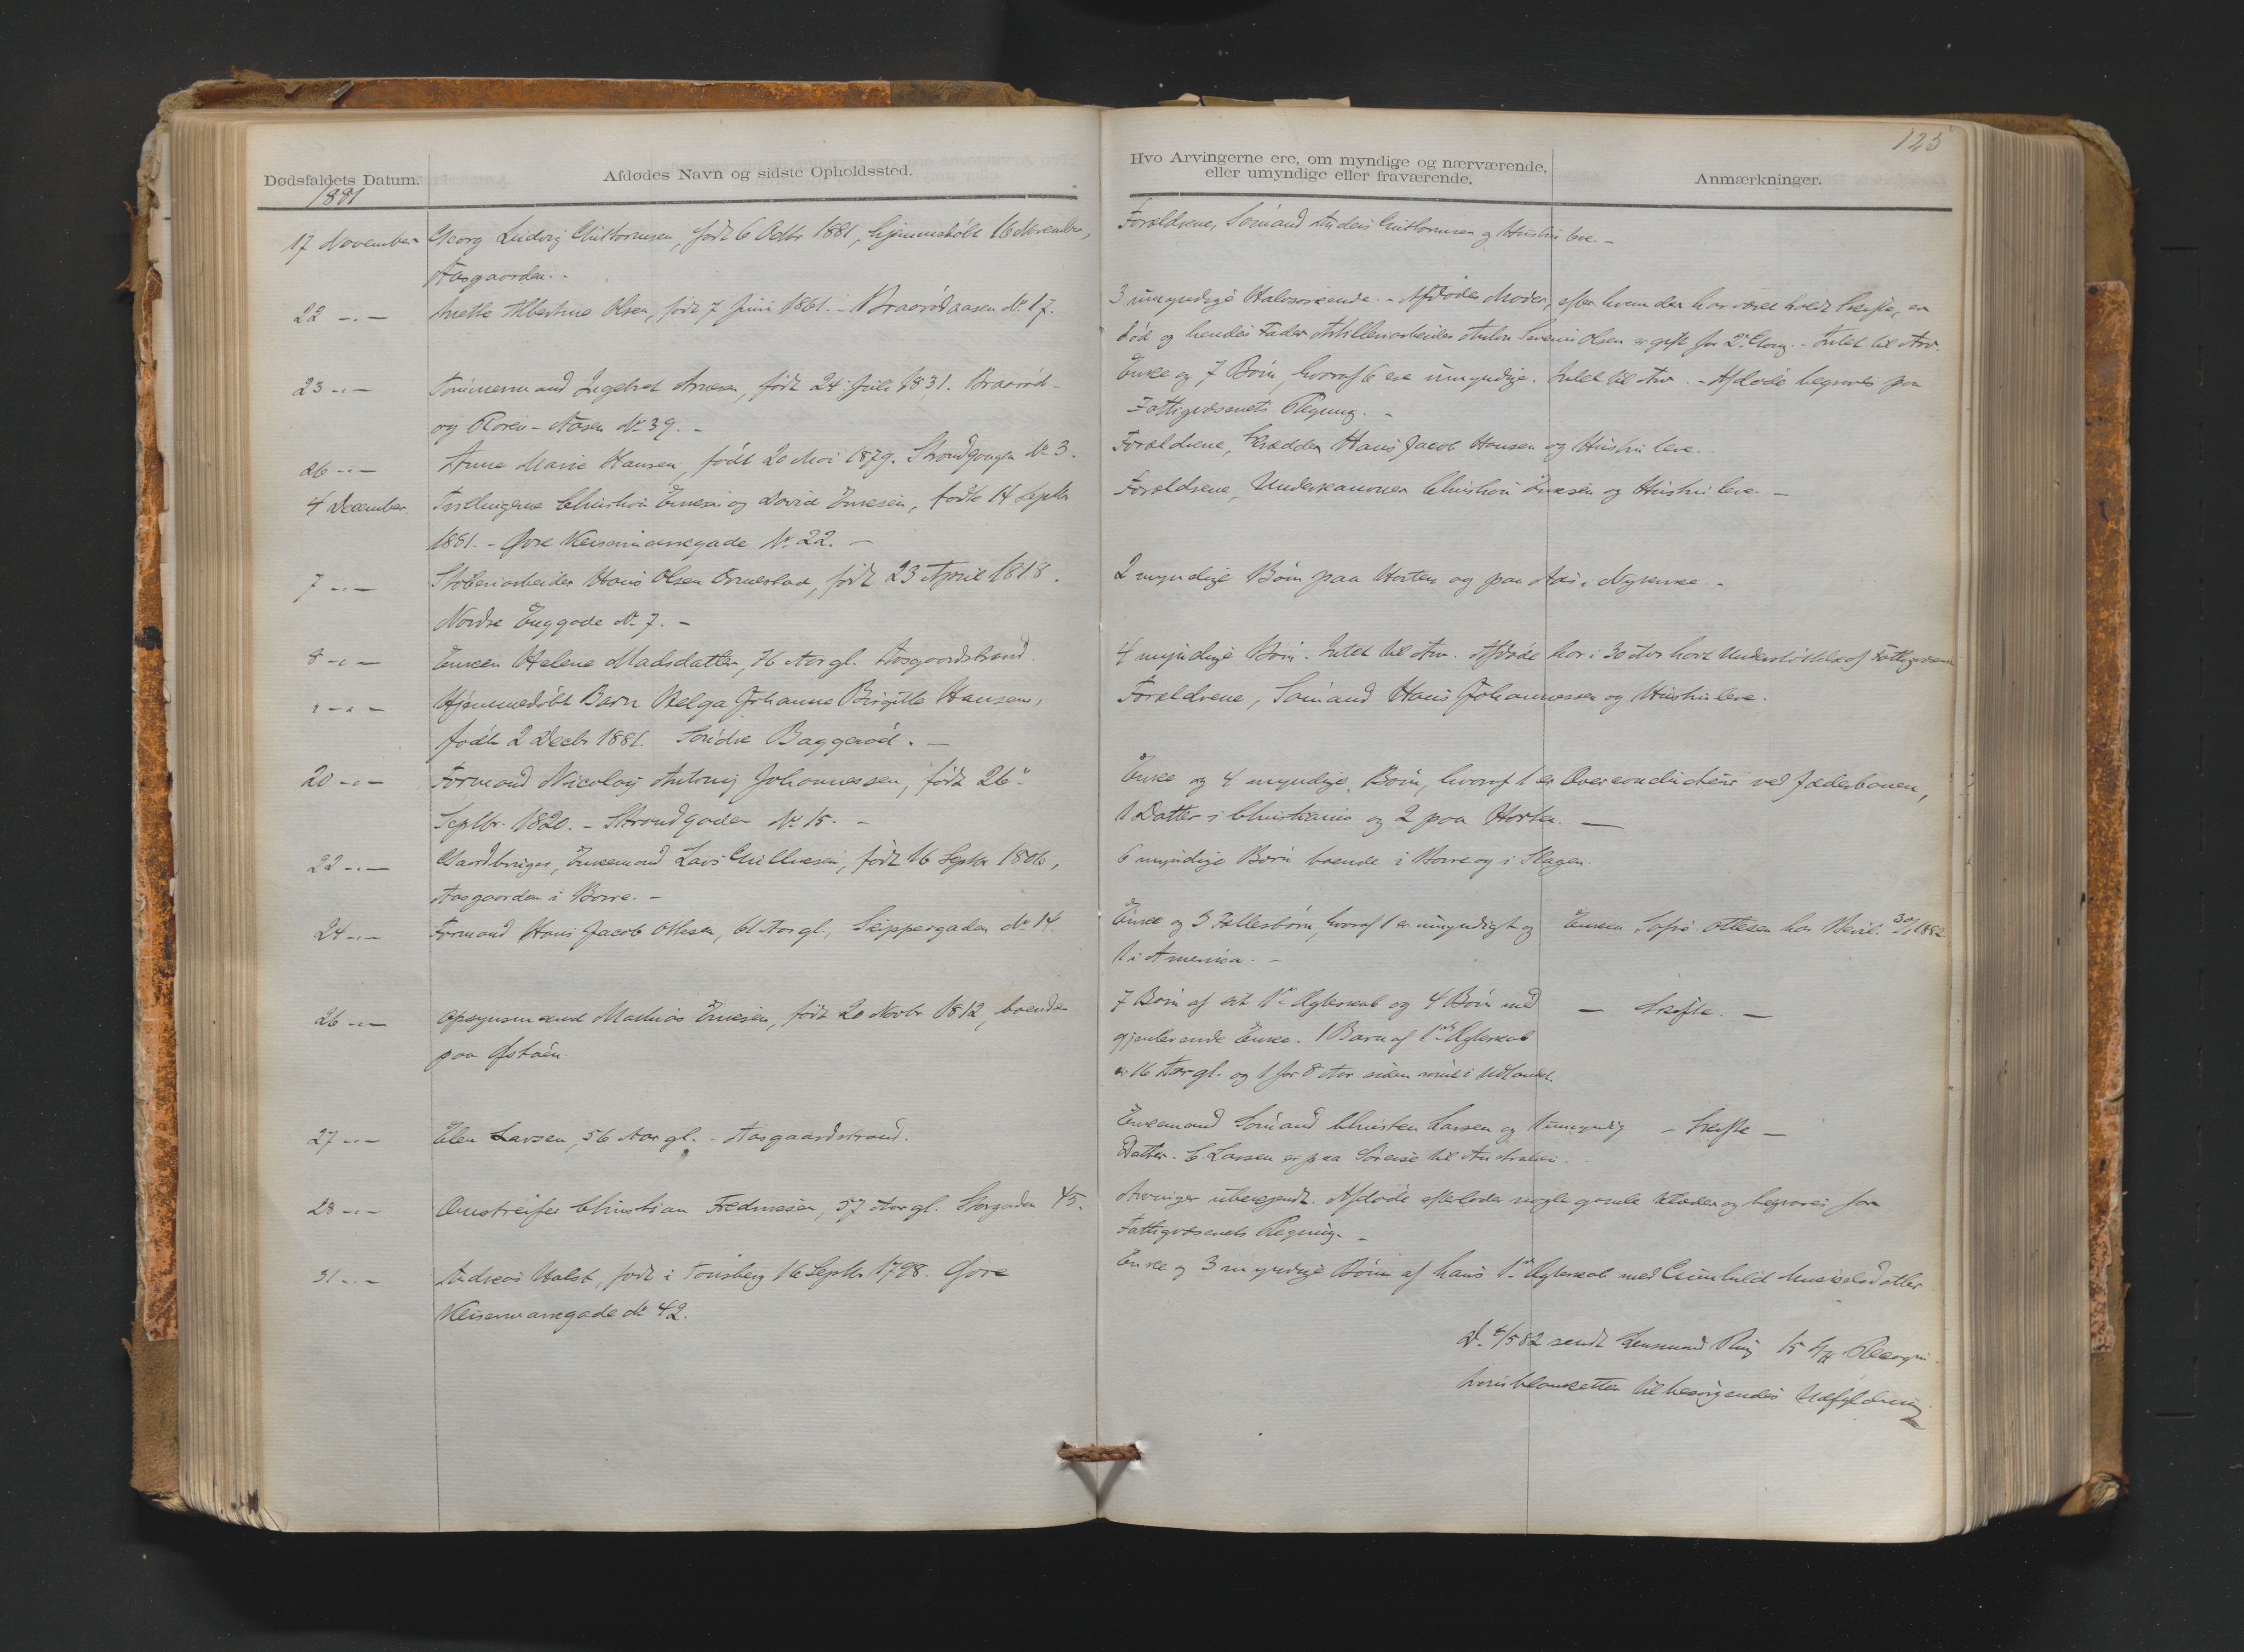 125
Dødsfaldets Datum.
Afdødes Navn og sidste Opholdssted.
Hvo Arvingerne ere, om myndige og nærværende,
eller umyndige eller fraværende.
Anmærkninger.
1881
17 November
Georg Ludvig Guttormsen, født 6 Octbr 1881, hjemmedøbt 16 November,
Aasgaarden.
Forældrene, Sømand Anders Guttormsen og Hustru leve. -
22 -"-
Anette Albertine Olsen, født 7 Juni 1861. - Braarødaasen No 17.
3 umyndige Halvsøskende. - Afdødes Moder, efter hvem der har været holdt Skifte, er
død og hendes Fader Artilleriarbeider Anton Severin Olsen er gift for 2. Gang. - Intet til Arv.
23 -"-
Tømmermand Ingebret Arnesen, født 24 Juli 1831. Braarød-
og Roreis-Aasen No 39. -
Enke og 7 Børn, hvoraf 6 ere umyndige. Intet til Arv. - Afdøde begraves paa
Fattigvæsenets Regning. -
26 -"-
Anne Marie Hansen, født 20 Mai 1879. Strandgangen No 3.
Forældrene, Skrædder Hans Jacob Hansen og Hustru leve.
4 December
Tvillingerne Christian Enersen og David Enersen, fødte 14 Septbr
1881. - Øvre Keisemarkegade No 22. -
Forældrene, Underkanoner Christian Enersen og Hustru leve. -
7 -"-
Støberiarbeider Hans Olsen Ornestad, født 23 April 1818.
Nordre Enggade No 7. -
2 myndige Børn paa Horten og paa Aas i Nykirke. -
8 -"-
Enken Helene Madsdatter, 76 Aar gl. Aasgaardstrand.
4 myndige Børn. Intet til Arv. Afdøde har i 30 Aar havt Understøttelse af Fattigvæsen
" -"-
Hjemmedøbt Barn Helga Johanne Birgitte Hansen,
født 2 Decbr 1881. Søndre Baggerød. -
Forældrene, Sømand Hans Johannessen og Hustru leve.
20 -"-
Formand Nicolay Antonij Johannessen, født 26
Septbr. 1820. - Strandgaden No 15. -
Enke og 4 myndige Børn, hvoraf 1 er Overconducteur ved Jæderbanen,
1 Datter i Christiania og 2 paa Horten. -
22 -"-
Gaardbruger, Enkemand Lars Gulliksen, født 16 Septbr 1806,
Aasgaarden i Borre. -
6 myndige Børn boende i Borre og i Slagen.
24 -"-
Formand Hans Jacob Ottesen, 61 Aar gl., Skippergaden No 14.
Enke og 3 Fællesbørn, hvoraf 1 er umyndigt og
1 i Amerika. -
Enken Sofie Ottesen har Bevil. 30/1 1882
26 -"-
Opsynsmand Mathias Enersen, født 20 Novbr 1812, boende
paa Østøen.
7 Børn af sit 1ste Ægteskab og 4 Børn med
gjenlevende Enke. 1 Barn af 1ste Ægteskab
er 16 Aar gl. og 1 for 8 Aar siden reist i Udlandet.
- Skifte. -
27 -"-
Elen Larsen, 56 Aar gl. - Aasgaardstrand.
Enkemand Sømand Christen Larsen og 1 umyndig
Datter. C. Larsen er paa Søreise til Australien.
- Skifte -
28 -"-
Omstreifer Christian Fredriksen, 57 Aar gl. Storgaden 45.
Arvinger ubekjendt. Afdøde efterlader nogle gamle Klæder og begraves for
Fattigvæsenets Regning. -
31 -"-
Andreas Holst, født i Tønsberg 16 Septbr 1798. Øvre
Keisemarkegade No 42.
Enke og 3 myndige Børn af hans 1ste Ægteskab med Gunhild
D. 4/5 82 sendt Lensmand Ring 15
blanketter til besørgendes Udfyldning